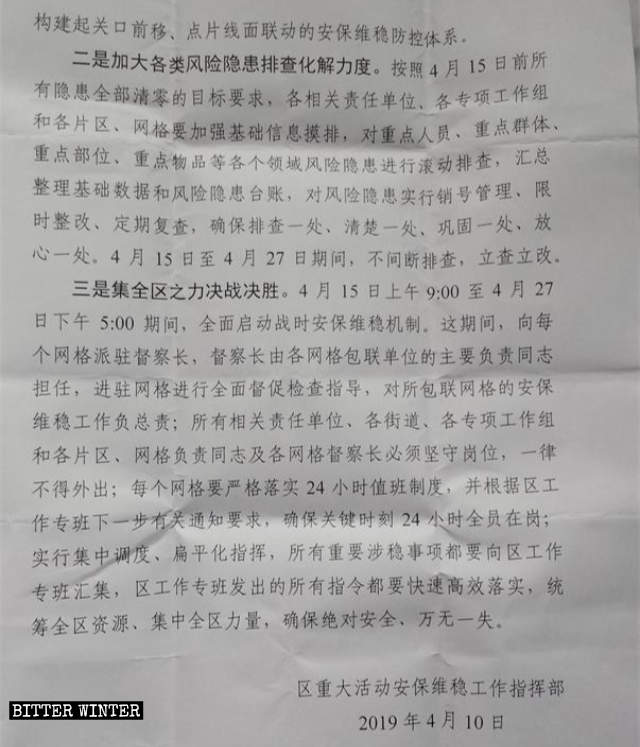 构建起关口前移、点片线面联动的安保维稳防控体系。
二是加大各类风险隐患排查化解力度。按照 4 月 15 日前所
有隐患全部清零的目标要求，各相关责任单位、各专项工作组
和各片区、网格要加强基础信息摸排，对重点人员、重点群体、
重点部位、重点物品等各个领域风险隐患进行滚动排查，汇总
整理基础数据和风险隐患台账，对风险隐患实行销号管理、限
时整改、定期复查，确保排查一处、清楚一处、巩固一处、放
心一处。4 月 15 日至 4 月 27 日期间，不间断排查，立查立改。
三是集全区之力决战决胜。4 月 15 日上午 9:00 至 4 月 27
日下午 5:00 期间，全面启动战时安保维稳机制。这期间，向每
个网格派驻督察长，督察长由各网格包联单位的主要负责同志
担任，进驻网格进行全面督促检查指导，对所包联网格的安保
维稳工作负总责；所有相关责任单位、各街道、各专项工作组
和各片区、网格负责同志及各网格督察长必须坚守岗位，一律
不得外出；每个网格要严格落实 24 小时值班制度，并根据区工
作专班下一步有关通知要求，确保关键时刻 24 小时全员在岗；
实行集中调度、扁平化指挥，所有重要涉稳事项都要向区工作
专班汇集，区工作专班发出的所有指令都要快速高效落实，统
筹全区资源、集中全区力量，确保绝对安全、万无一失。
区重大活动安保维稳工作指挥部
2019 年 4 月 10 日
BITTER WINTER